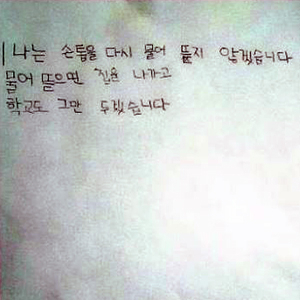 나는 손톱을 다시 물어 뜯지 않겠습니다
물어 뜯으면 집을 나가고
학교도 그만 두겠습니다